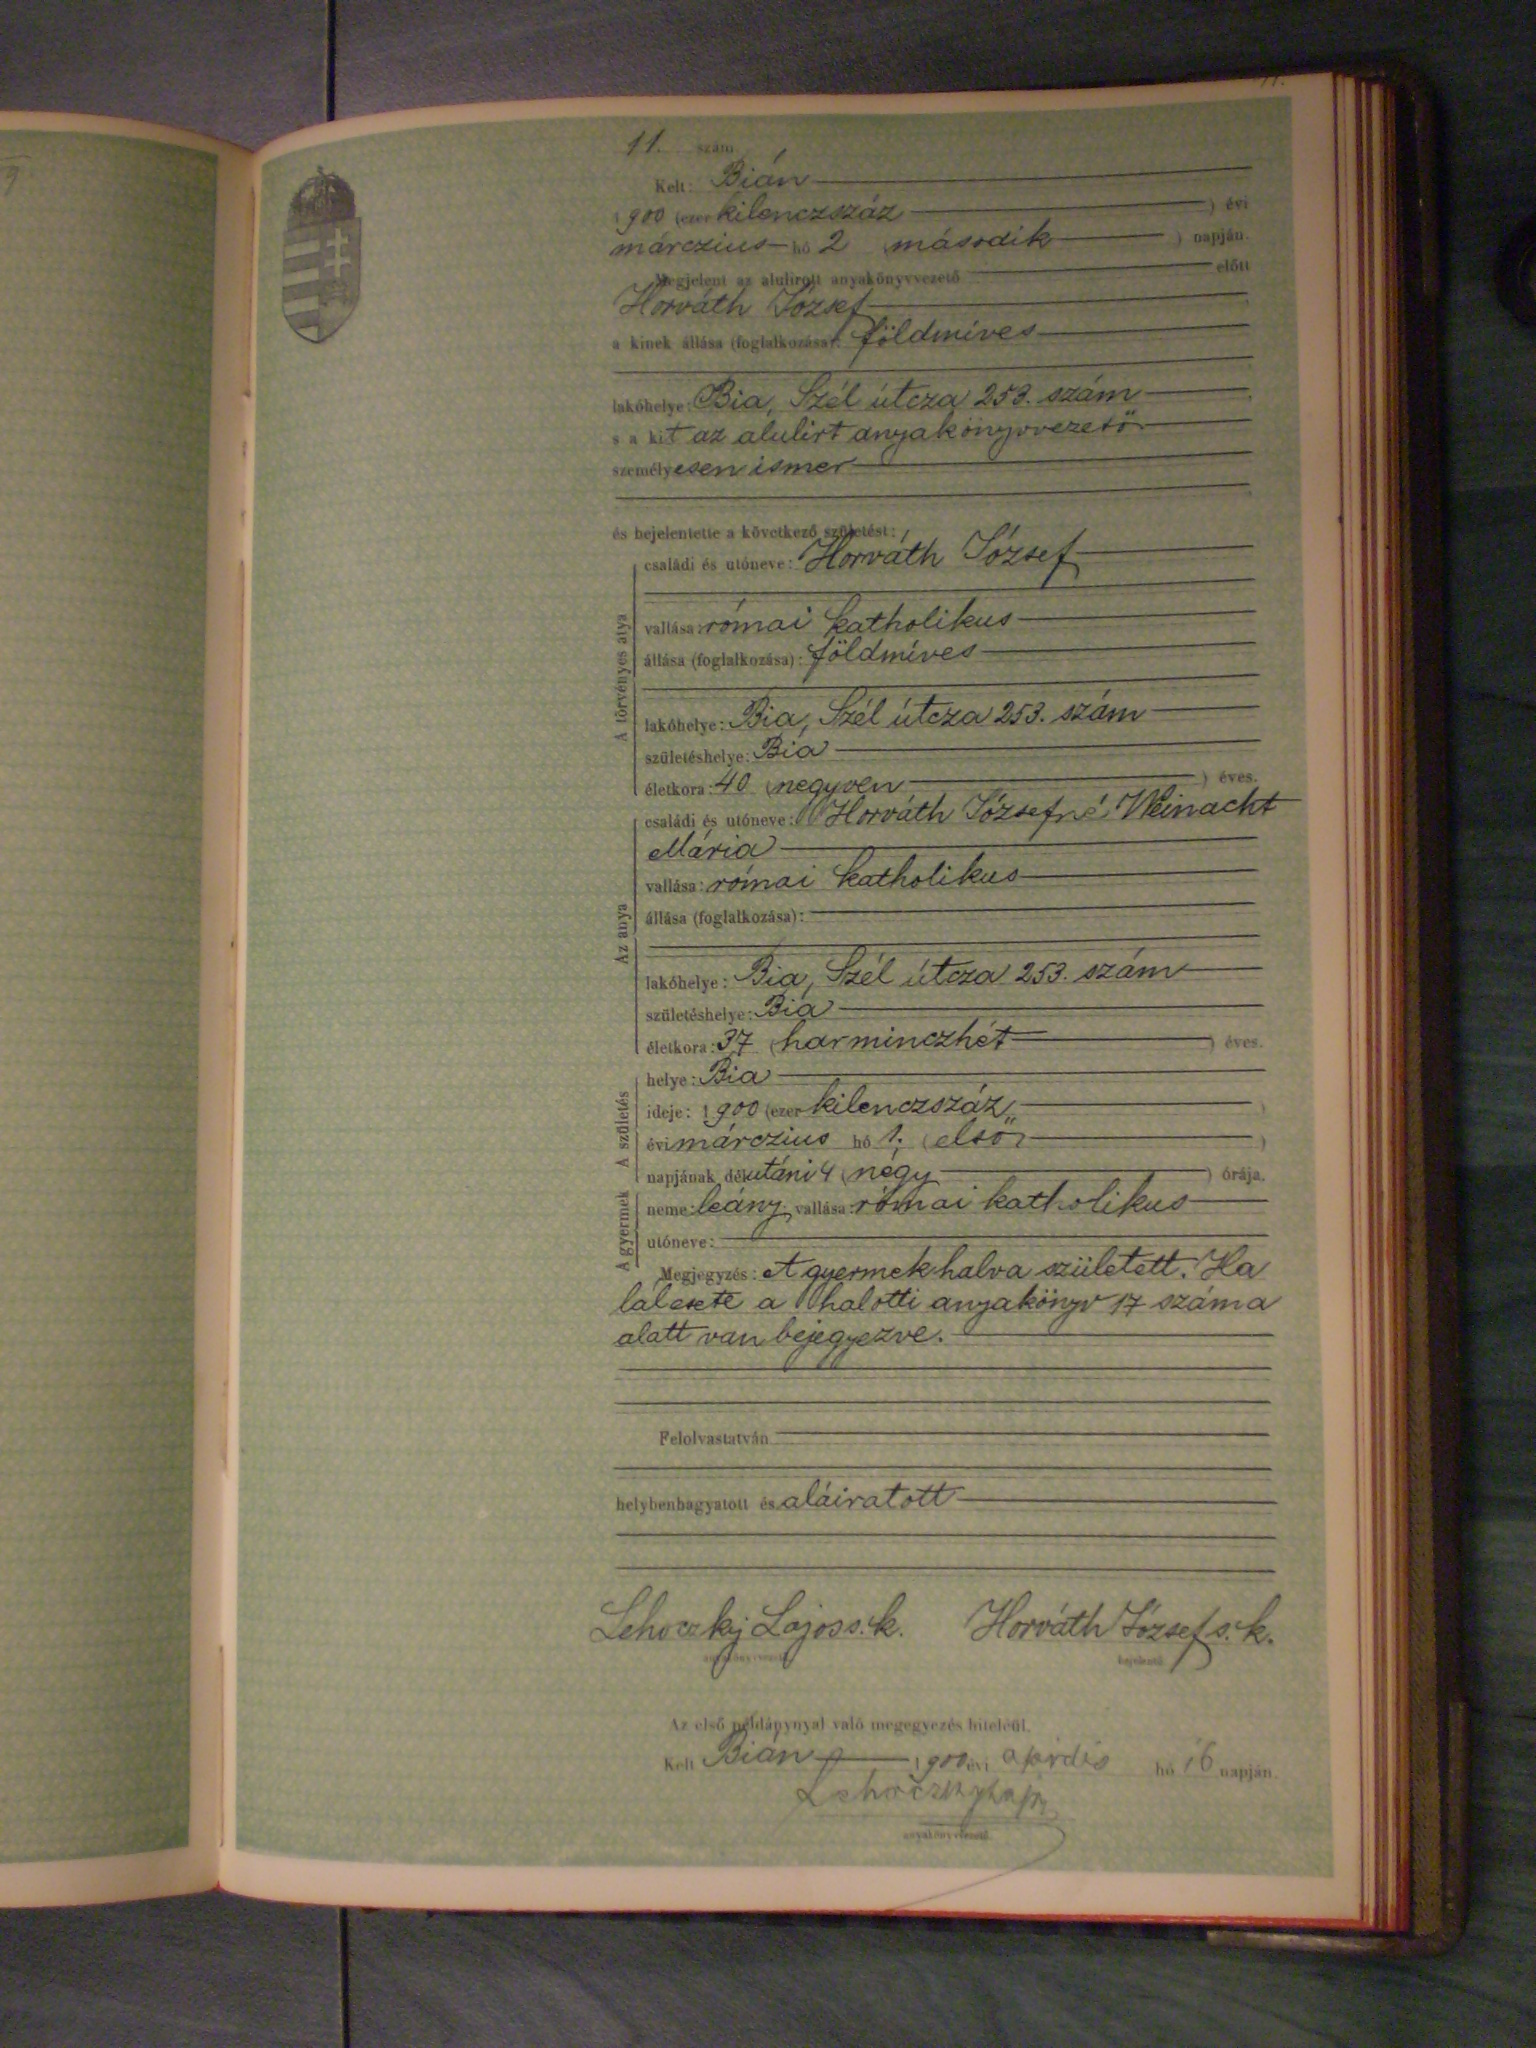 11. szám
Kelt: Bián
1900 (ezer kilenczszáz ) évi
márczius hó 2 (második ) napján.
Megjelent az alulírott anyakönyvvezető előtt
Horváth József
a kinek állása (foglalkozása): földmíves
lakóhelye: Bia, Szél útcza 253. szám
s a kit az alulirt anyakönyvvezető
személyesen ismer
és bejelentette a következő születést:
A törvényes atya
családi és utóneve: Horváth József
vallása: római katholikus
állása (foglalkozása): földmíves
lakóhelye: Bia, Szél útcza 253. szám
születéshelye: Bia
életkora: 40 (negyven ) éves.
Az anya
családi és utóneve: Horváth Józsefné Weinacht
Mária
vallása: római katholikus
állása (foglalkozása):
lakóhelye: Bia, Szél útcza 253. szám
születéshelye: Bia
életkora: 37 (harminczhét ) éves.
A születés
helye: Bia
ideje: 1900 (ezer kilenczszáz )
évi márczius hó 1. (első )
napjának délutáni 4 (négy ) órája.
A gyermek
neme: leány, vallása: római katholikus
utóneve:
Megjegyzés: A gyermek halva született. Ha
lálesete a halotti anyakönyv 17 száma
alatt van bejegyezve.
Felolvastatván
helybenhagyatott és aláiratott
Lehoczky Lajos s. k. Horváth József s. k.
anyakönyvvezető bejelentő
Az első példánynyal való megegyezés hiteléül.
Kelt Bián 1900 évi április hó 16 napján.
Lehoczky Lajos
anyakönyvvezető